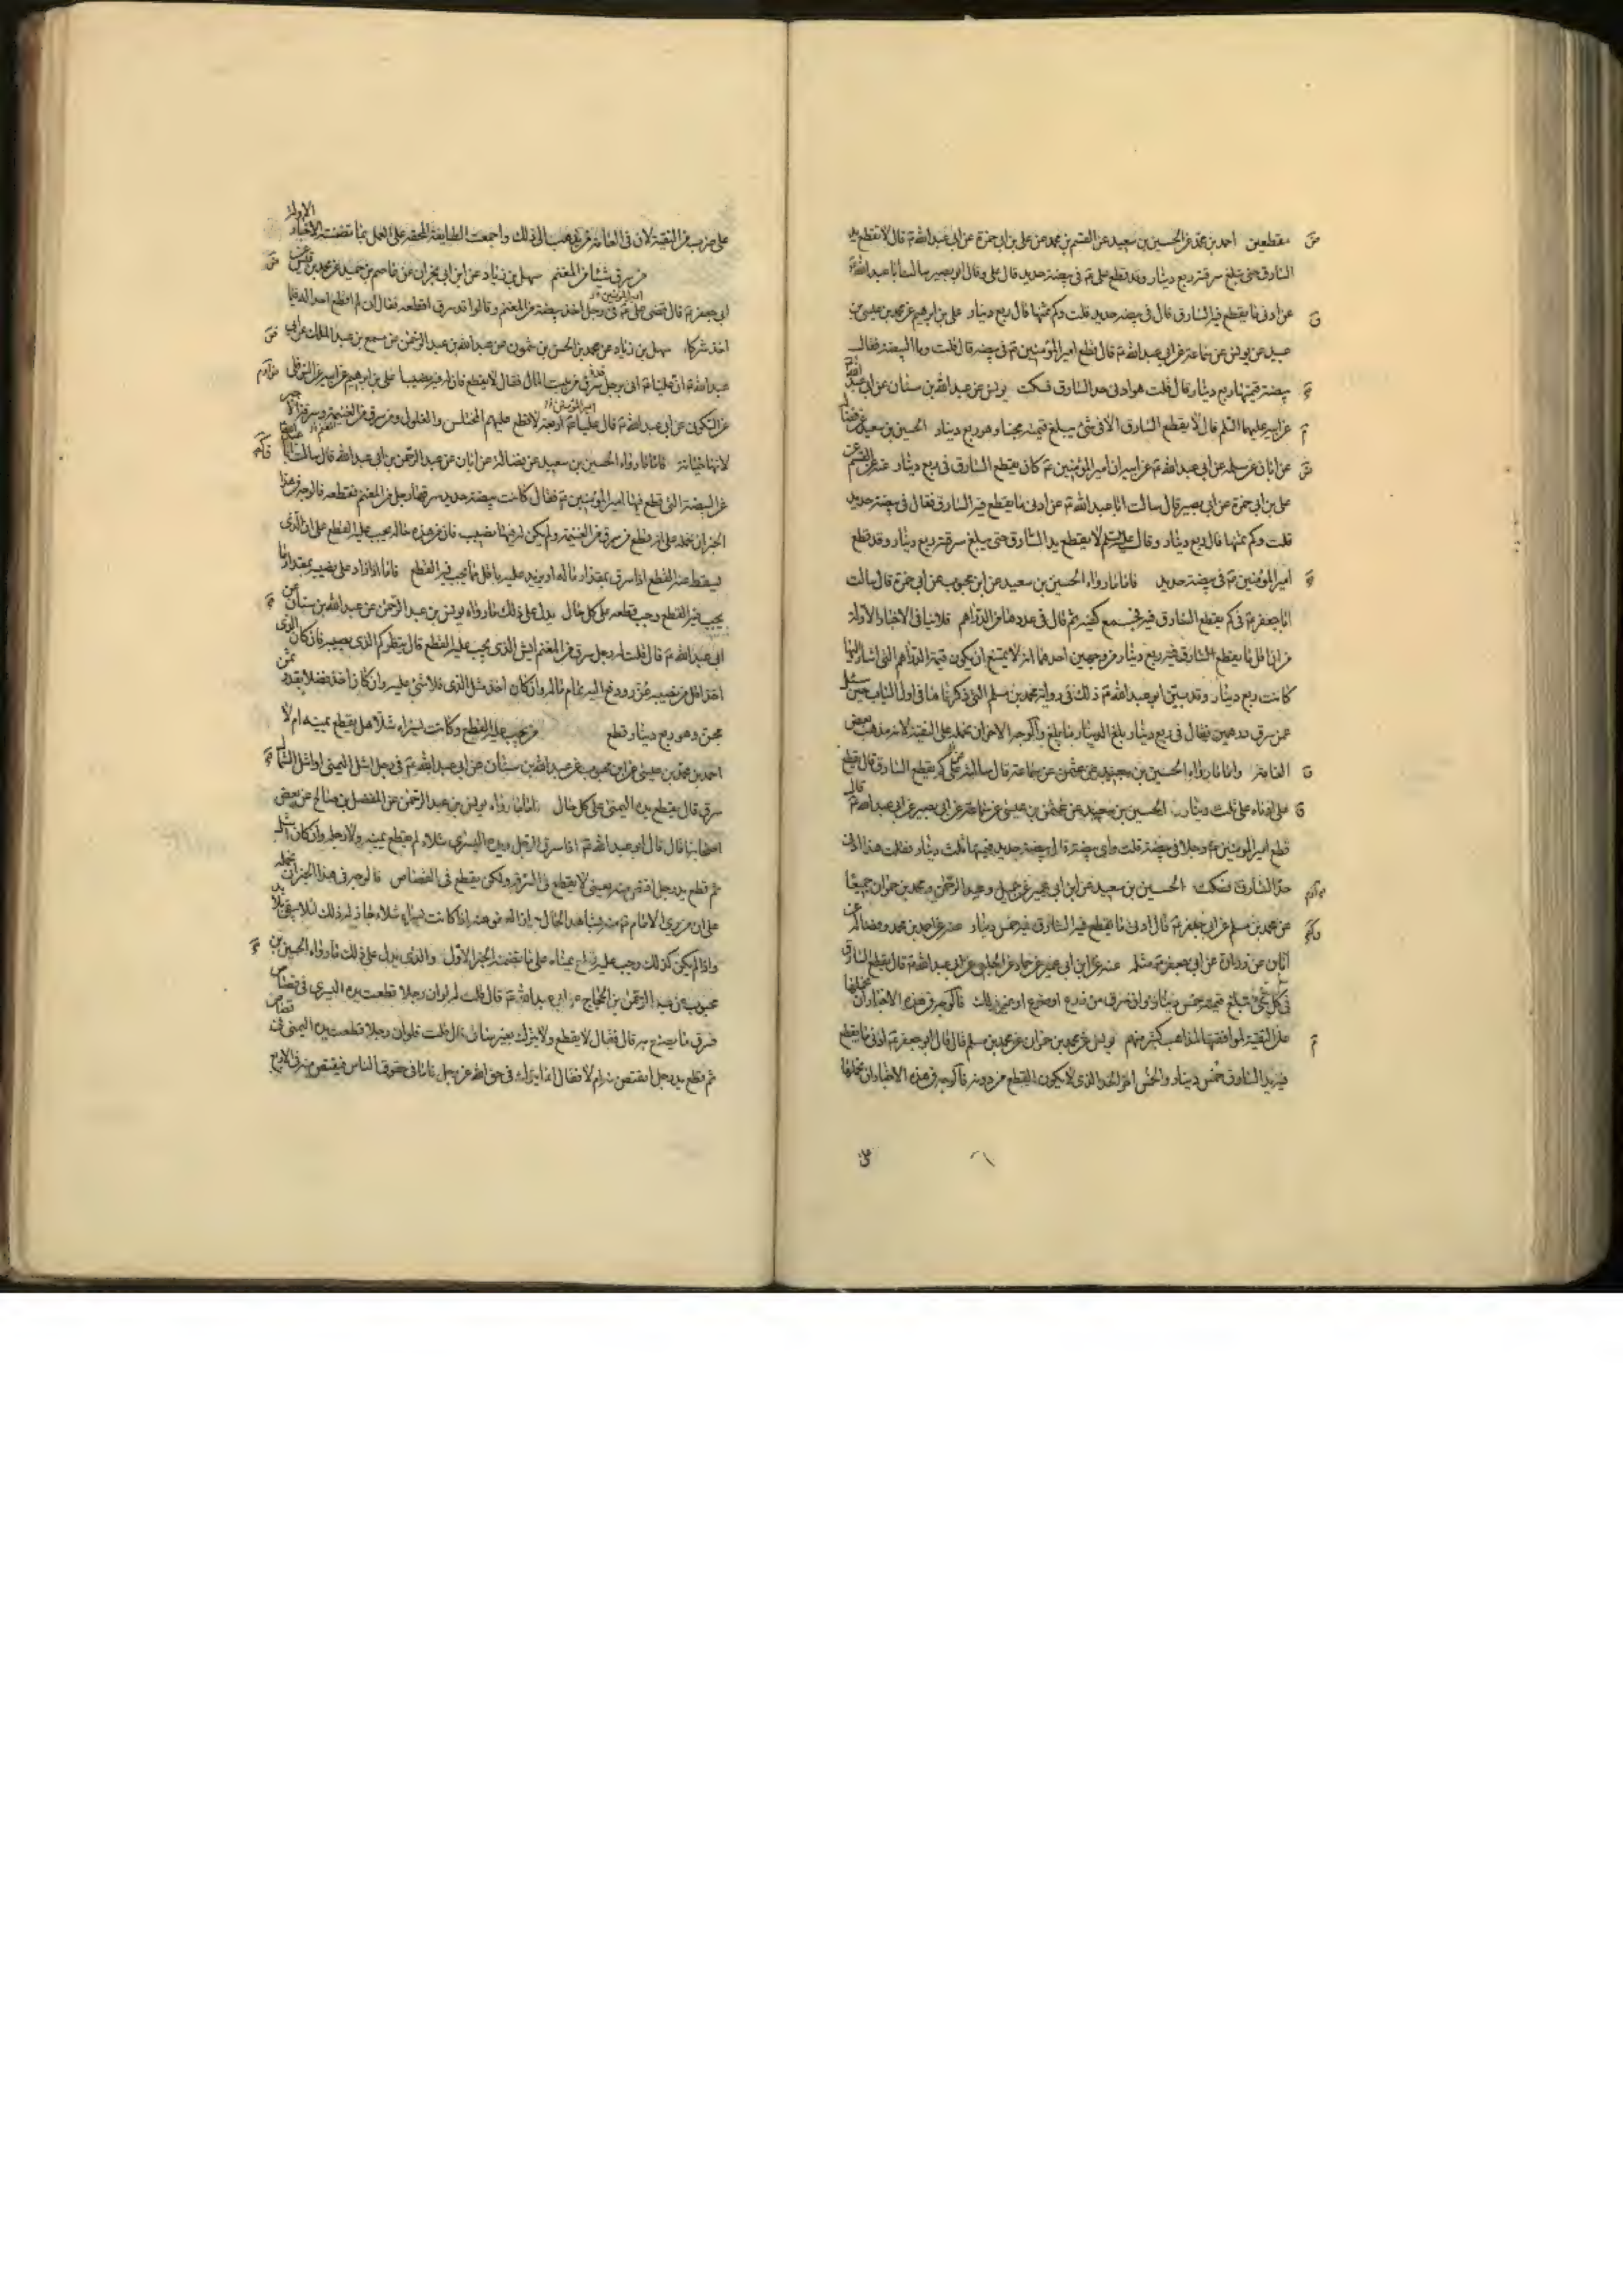 مقطعين احمد بن محمد عن الحسين بن سعيد عن القسم بن محمد عن علي بن ابي حمزة عن ابي عبد الله ع قال لا تقطع يد
السارق حتى تبلغ سرقته ربع دينار وقد قطع علي ع في بيضة حديد قال علي وقال ابو بصير سالت ابا عبد الله ع
عن ادنى ما يقطع فيه السارق قال في بيضة حديد قلت وكم ثمنها قال ربع دينار علي بن ابرهيم عن محمد بن عيسى بن
عبيد عن يونس عن سماعة عن ابي عبد الله ع قال قطع امير المؤمنين ع في بيضة قال قلت وما البيضة فقال
بيضة قيمتها ربع دينار قال قلت هو ادنى حد السارق فسكت يونس عن عبد الله بن سنان عن ابي عبد الله
عليهما السلم قال لا يقطع السارق الا في شئ يبلغ قيمته مجنا وهو ربع دينار الحسين بن سعيد عن فضالة
عن ابان عن سلمة عن ابي عبد الله ع عن ابيه ان امير المؤمنين ع كان يقطع السارق في ربع دينار عنه عن القسم عن
علي بن ابي حمزة عن ابي بصير قال سالت ابا عبد الله ع عن ادنى ما يقطع فيه السارق فقال في بيضة حديد
قلت وكم ثمنها قال ربع دينار وقال عليه السلم لا يقطع يد السارق حتى يبلغ سرقته ربع دينار وقد قطع
امير المؤمنين ع في بيضة حديد فاما ما رواه الحسين بن سعيد عن ابن محبوب عن ابي حمزة قال سالت
ابا جعفر ع في كم يقطع السارق فجمع كفيه ثم قال في عددها من الدراهم فلا ينافي الاخبار الاولة
من ان اقل ما يقطع السارق فيه ربع دينار من وجهين احدهما انه لا يمتنع ان يكون قيمة الدراهم التي اشار اليها
كانت ربع دينار وقد بين ابو عبد الله ع ذلك في رواية محمد بن مسلم التي ذكرناها في اول الباب حين سئل
عمن سرق درهمين فقال في ربع دينار بلغ الدينار ما بلغ والوجه الاخر ان نحمله على التقية لانه مذهب بعض
العامة واما ما رواه الحسين بن سعيد عن عثمن عن سماعة قال سالته على كم يقطع السارق قال يقطع
على ثلث دينار الحسين بن سعيد عن عثمن بن عيسى عن سماعة عن ابي بصير عن ابي عبد الله ع قال
قطع امير المؤمنين ع رجلا في بيضة قلت واي بيضة قال بيضة حديد قيمتها ثلث دينار فقلت هذا ادنى
حد السارق فسكت الحسين بن سعيد عن ابن ابي عمير عن جميل وعبد الرحمن ومحمد بن حمران جميعا
عن محمد بن مسلم عن ابي جعفر ع قال ادنى ما يقطع فيه السارق خمس دينار عنه عن احمد بن محمد وفضالة عن
ابان عن زرارة عن ابي جعفر ع مثله عنه عن ابن ابي عمير عن حماد عن الحلبي عن ابي عبد الله ع قال يقطع السارق
في كل شئ تبلغ قيمته خمس دينار وان سرق من زرع او ضرع او غير ذلك فالوجه في هذه الاخبار ان نحملها
على التقية لموافقتها لمذاهب كثير منهم يونس عن محمد بن حمران عن محمد بن مسلم قال قال ابو جعفر ع ادنى ما يقطع
فيه يد السارق خمس دينار والخمس اخر الحد الذي لا يكون القطع من دونه فالوجه في هذه الاخبار ان نحملها
على ضرب من التقية لان في العامة من يذهب الى ذلك واجمعت الطايفة المحقة على العمل بما تضمنته الاخبار الاولة
من سرق شيئا من المغنم سهل بن زياد عن ابن ابي نجران عن عاصم بن حميد عن محمد بن قيس عن
ابي جعفر ع قال قضى علي ع في رجل اخذ بيضة من المغنم وقالوا قد سرق اقطعه فقال اني لم اقطع احدا له فيما
اخذ شرك سهل بن زياد عن محمد بن الحسن بن شمون عن عبد الله بن عبد الرحمن عن مسمع بن عبد الملك عن ابي
عبد الله ع ان عليا ع اتي برجل سرق من بيت المال فقال لا يقطع فان له فيه نصيبا علي بن ابرهيم عن ابيه عن النوفلي
عن السكوني عن ابي عبد الله ع قال قال علي ع اربعة لا قطع عليهم المختلس والغلول ومن سرق من الغنيمة وسرقة الاجير
لانها خيانة فاما ما رواه الحسين بن سعيد عن فضالة عن ابان عن عبد الرحمن بن ابي عبد الله قال سالت ابا عبد الله
عن البيضة التي قطع فيها امير المؤمنين ع فقال كانت بيضة حديد سرقها رجل من المغنم فقطعه فالوجه في هذا
الخبر ان نحمله على انه قطع من سرق من الغنيمة ولم يكن له فيها نصيب فان من هذه حاله يجب عليه القطع على ان الذي
يسقط عنه القطع اذا سرق بمقدار ماله او يزيد عليه باقل مما يجب فيه القطع فاما اذا زاد على نصيبه بمقدار ما
يجب فيه القطع وجب قطعه على كل حال يدل على ذلك ما رواه يونس بن عبد الرحمن عن عبد الله بن سنان عن
ابي عبد الله ع قال قلت له رجل سرق من المغنم ايش الذي يجب عليه القطع قال ينظر كم الذي يصيبه فان كان الذي
اخذ اقل من نصيبه عزر ودفع اليه تمام ماله وان كان اخذ مثل الذي له فلا شئ عليه وان كان اخذ فضلا بقدر ثمن
مجن وهو ربع دينار قطع من يجب عليه القطع وكانت يسراه شلاء هل يقطع يمينه ام لا
احمد بن محمد بن عيسى عن ابن محبوب عن عبد الله بن سنان عن ابي عبد الله ع في رجل اشل اليمنى او اشل الشمال
سرق قال يقطع يده اليمنى على كل حال فاما ما رواه يونس بن عبد الرحمن عن المفضل بن صالح عن بعض
اصحابنا قال قال ابو عبد الله ع اذا سرق الرجل ويده اليسرى شلاء لم يقطع يمينه ولا رجله وان كان اشل
ثم قطع يد رجل اقتص منه يعني لا يقطع في السرقة ولكن يقطع في القصاص فالوجه في هذا الخبر ان نحمله
على ان من يرى الامام ع منه بشاهد الحال جاز له العفو عنه اذا كانت يسراه شلاء جاز له ذلك لئلا يبقى بلا يد
واذا لم يكن كذلك وجب عليه قطع يمناه على ما تضمنه الخبر الاول والذي يدل على ذلك ما رواه الحسين بن
محبوب عن عبد الرحمن بن الحجاج عن ابي عبد الله ع قال قلت له لو ان رجلا قطعت يده اليسرى في قصاص
فسرق ما يصنع به قال فقال لا يقطع ولا يترك بغير ساق قال قلت فلو ان رجلا قطعت يده اليمنى في قصاص
ثم قطع يد رجل ايقتص منه ام لا فقال انما يترك في حق الله عز وجل فاما في حقوق الناس فيقتص منه في الاربع